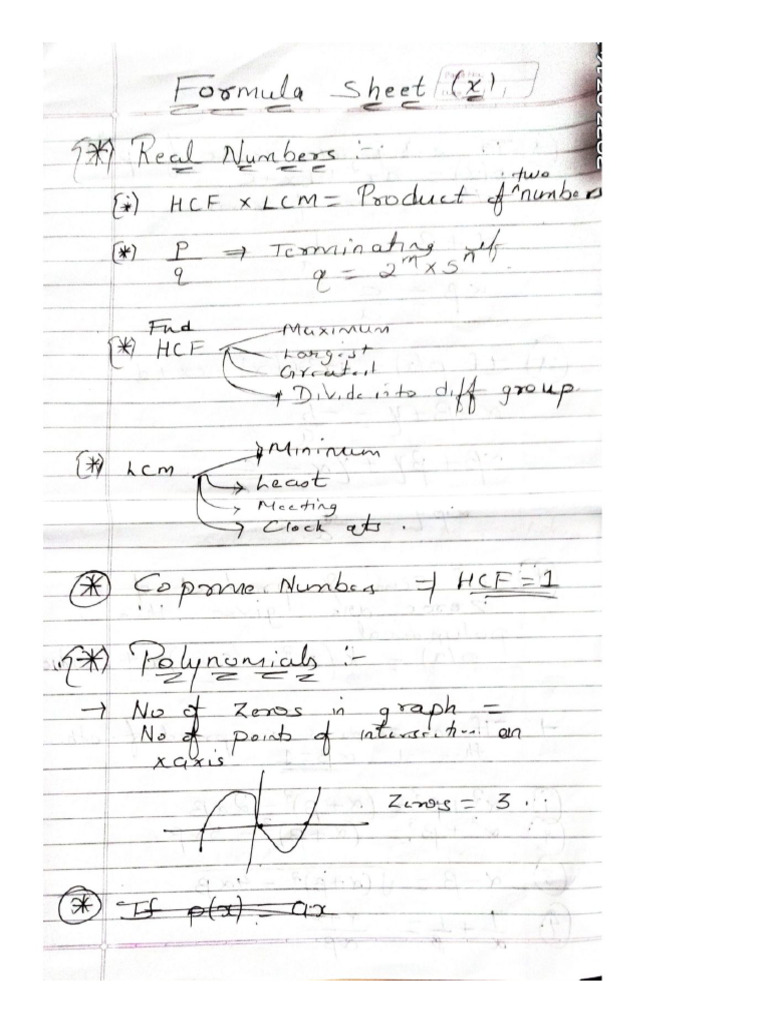 Formula Sheet (X)
(*) Real Numbers :-
(i) HCF x LCM = Product of two numbers
(*) P/q ⇒ Terminating
q = 2^m x 5^n
Find
(*) HCF
Maximum
Largest
Greatest
Divide into diff group
(*) LCM
Minimum
Least
Meeting
Clock
(*) Coprime Numbers ⇒ HCF = 1
(*) Polynomials :-
→ No of Zeros in graph =
No of points of intersection on
x axis
Zeros = 3
(*) If p(x) = ax